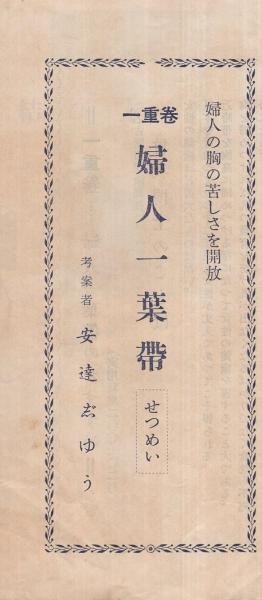 婦人の胸の苦しさを開放
一重卷
婦人一葉帶
せつめい
考案者 安達志ゆう